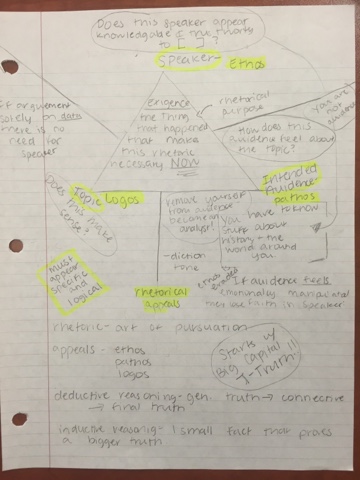 Does this speaker appear
knowledgable & trustworthy
to [ ] ?
Speaker - Ethos
exigence
the thing
that happened
that make
this rhetoric
necessary NOW
rhetorical
purpose
you are
not
audience
If arguement
solely on data
there is no
need for
speaker
How does this
audience feel about
the topic?
Topic Logos
Does this make
sense?
Must
appear
specific
and
logical
remove yourself
from audience
become an
analyst!
-diction
tone
rhetorical
appeals
Intended
Audience-
pathos
You have to know
stuff about
history - the
world around
you
ethos is
eroded
If audience feels
emotionally manipulated
they lose faith in speaker
rhetoric - art of pursuation
appeals - ethos
pathos
logos
Starts w/
Big Capital !!
T-Truth!
deductive reasoning - gen. truth → connective
→ final truth
inductive reasonig - 1 small fact that proves
a bigger truth